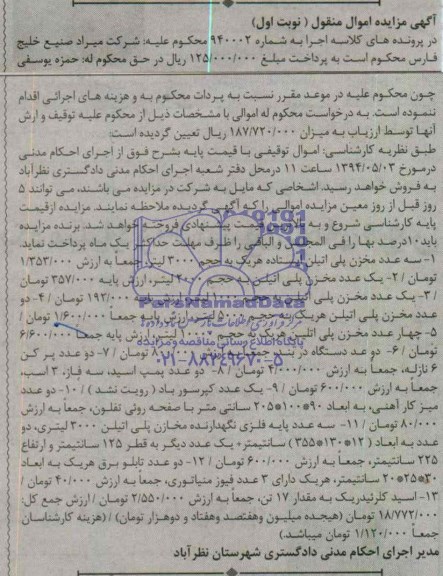 آگهی مزایده اموال منقول ( نوبت اول)
در پرونده های کلاسه اجرا به شماره ۹۴۰۰۰۲ محکوم علیه: شرکت میراد صنیع خلیج
فارس محکوم است به پرداخت مبلغ ۱۲۵/۰۰۰/۰۰۰ ریال در حق محکوم له: حمزه یوسفی
چون محکوم علیه در موعد مقرر نسبت به پرداخت محکوم به و هزینه های اجرائی اقدام
ننموده است. به درخواست محکوم له اموالی با مشخصات ذیل از محکوم علیه توقیف و ارش
آنها توسط ارزیاب به میزان ۱۸۷/۷۲۰/۰۰۰ ریال تعیین گردیده است:
طبق نظریه کارشناسی: اموال توقیفی با قیمت پایه بشرح فوق از اجرای احکام مدنی
درمورخ ۱۳۹۴/۰۵/۰۳ ساعت ۱۱ درمحل دفتر شعبه اجرای احکام مدنی دادگستری نظرآباد
به فروش خواهد رسید. اشخاصی که مایل به شرکت در مزایده می باشند، می توانند ۵
روز قبل از روز معین مزایده اموالی را که آگهی گردیده ملاحظه نمایند. مزایده ازقیمت
پایه کارشناسی شروع و به قیمت پیشنهادی فروخته خواهد شد. برنده مزایده
باید ۱۰درصد بها را فی المجلس و الباقی را ظرف مهلت حداکثر یک ماه پرداخت نماید.
۱- سه عدد مخزن پلی اتیلن ایستاده هریک به حجم ۳۰۰۰ لیتر، جمعاً به ارزش ۱/۳۵۳/۰۰۰
تومان / ۲- یک عدد مخزن پلی اتیلن به حجم ۲۰۰۰ لیتر، ارزش پایه ۳۵۷/۰۰۰ تومان
/ ۳- یک عدد مخزن پلی ۱۹۲/۰۰۰ تومان / ۴- دو
عدد مخزن پلی اتیلن هریک به حجم ۵۰۰۰ لیتر ارزش پایه جمعاً ۱/۶۰۰/۰۰۰ تومان /
۵- چهار عدد مخزن پلی اتیلن هریک ارزش پایه جمعاً ۶/۶۰۰/۰۰۰
تومان / ۶- دو عدد دستگاه در بند تومان / ۷- دو عدد پر کن
۶ نازله، جمعاً به ارزش ۴/۰۰۰/۰۰۰ تومان / ۸- دو عدد پمپ اسید، سه فاز، ۳ اسب،
جمعاً به ارزش ۶۰۰/۰۰۰ تومان / ۹- یک عدد کپرسور باد ( رویت نشد ) / ۱۰- دو عدد
میز کار آهنی، به ابعاد ۹۰*۱۰۰*۲۰۵ سانتی متر با صفحه روئی تفلون، جمعاً به ارزش
۸۰/۰۰۰ تومان / ۱۱- سه عدد پایه فلزی نگهدارنده مخازن پلی اتیلن ۳۰۰۰ لیتری، دو
عدد به ابعاد ( ۱۲*۱۳۰*۳۵۵) سانتیمتر، یک عدد دیگر به قطر ۱۲۵ سانتیمتر و ارتفاع
۲۲۵ سانتیمتر، جمعاً به ارزش ۶۰۰/۰۰۰ تومان / ۱۲- دو عدد تابلو برق هریک به ابعاد
۳۰*۲۵*۲۰ سانتیمتر، هریک دارای ۳ عدد فیوز مینیاتوری، جمعاً به ارزش ۴۰/۰۰۰ تومان /
۱۳- اسید کلرئیدریک به مقدار ۱۷ تن، جمعاً به ارزش ۲/۵۵۰/۰۰۰ تومان / ارزش جمع کل:
۱۸/۷۷۲/۰۰۰ تومان (هیجده میلیون وهفتصد وهفتاد و دوهزار تومان) / (هزینه کارشناسان
جمعاً ۱/۱۲۰/۰۰۰ تومان میباشد.)
مدیر اجرای احکام مدنی دادگستری شهرستان نظرآباد
ParsNamadData
پایگاه اطلاع رسانی مناقصه و مزایده
۰۲۱-۸۸۳۴۹۶۷۰-۵